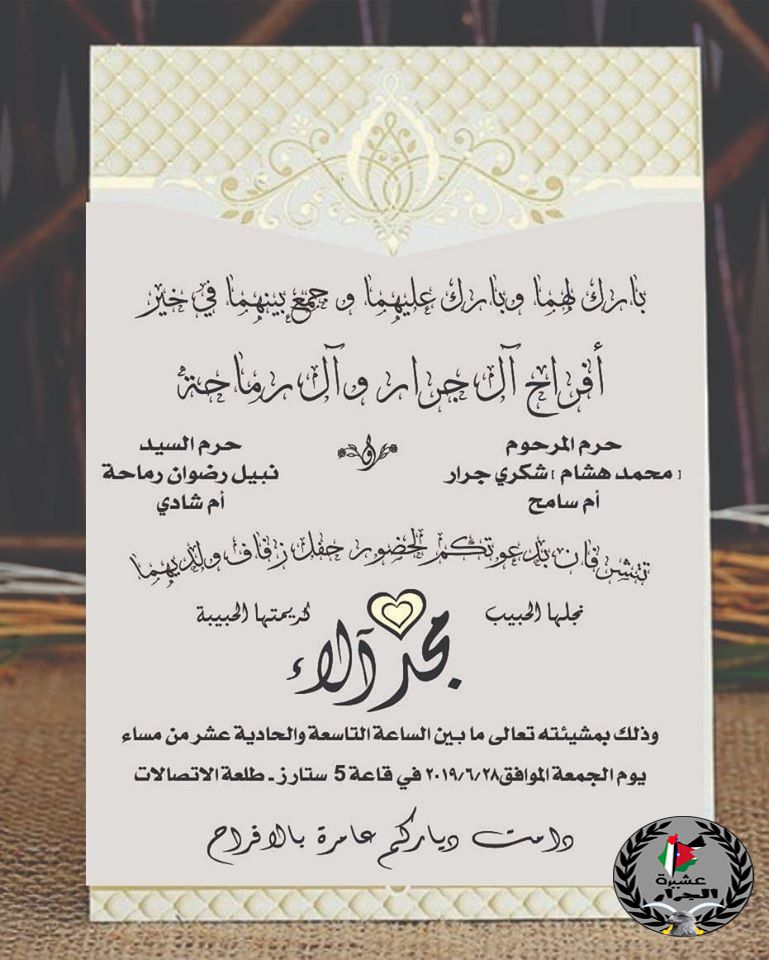 بارك لهما وبارك عليهما و جمع بينهما في خير
أفراح آل جرار و آل رماحة
حرم المرحوم
( محمد هشام ) شكري جرار
أم سامح
و
حرم السيد
نبيل رضوان رماحة
أم شادي
تتشرفان بدعوتكم لحضور حفل زفاف ولديهما
نجلها الحبيب
كريمتها الحبيبة
مجد آلاء
وذلك بمشيئته تعالى ما بين الساعة التاسعة والحادية عشر من مساء
يوم الجمعة الموافق ٢٠١٩/٦/٢٨ في قاعة 5 ستارز - طلعة الاتصالات
دامت دياركم عامرة بالافراح
عشيرة
الجرار